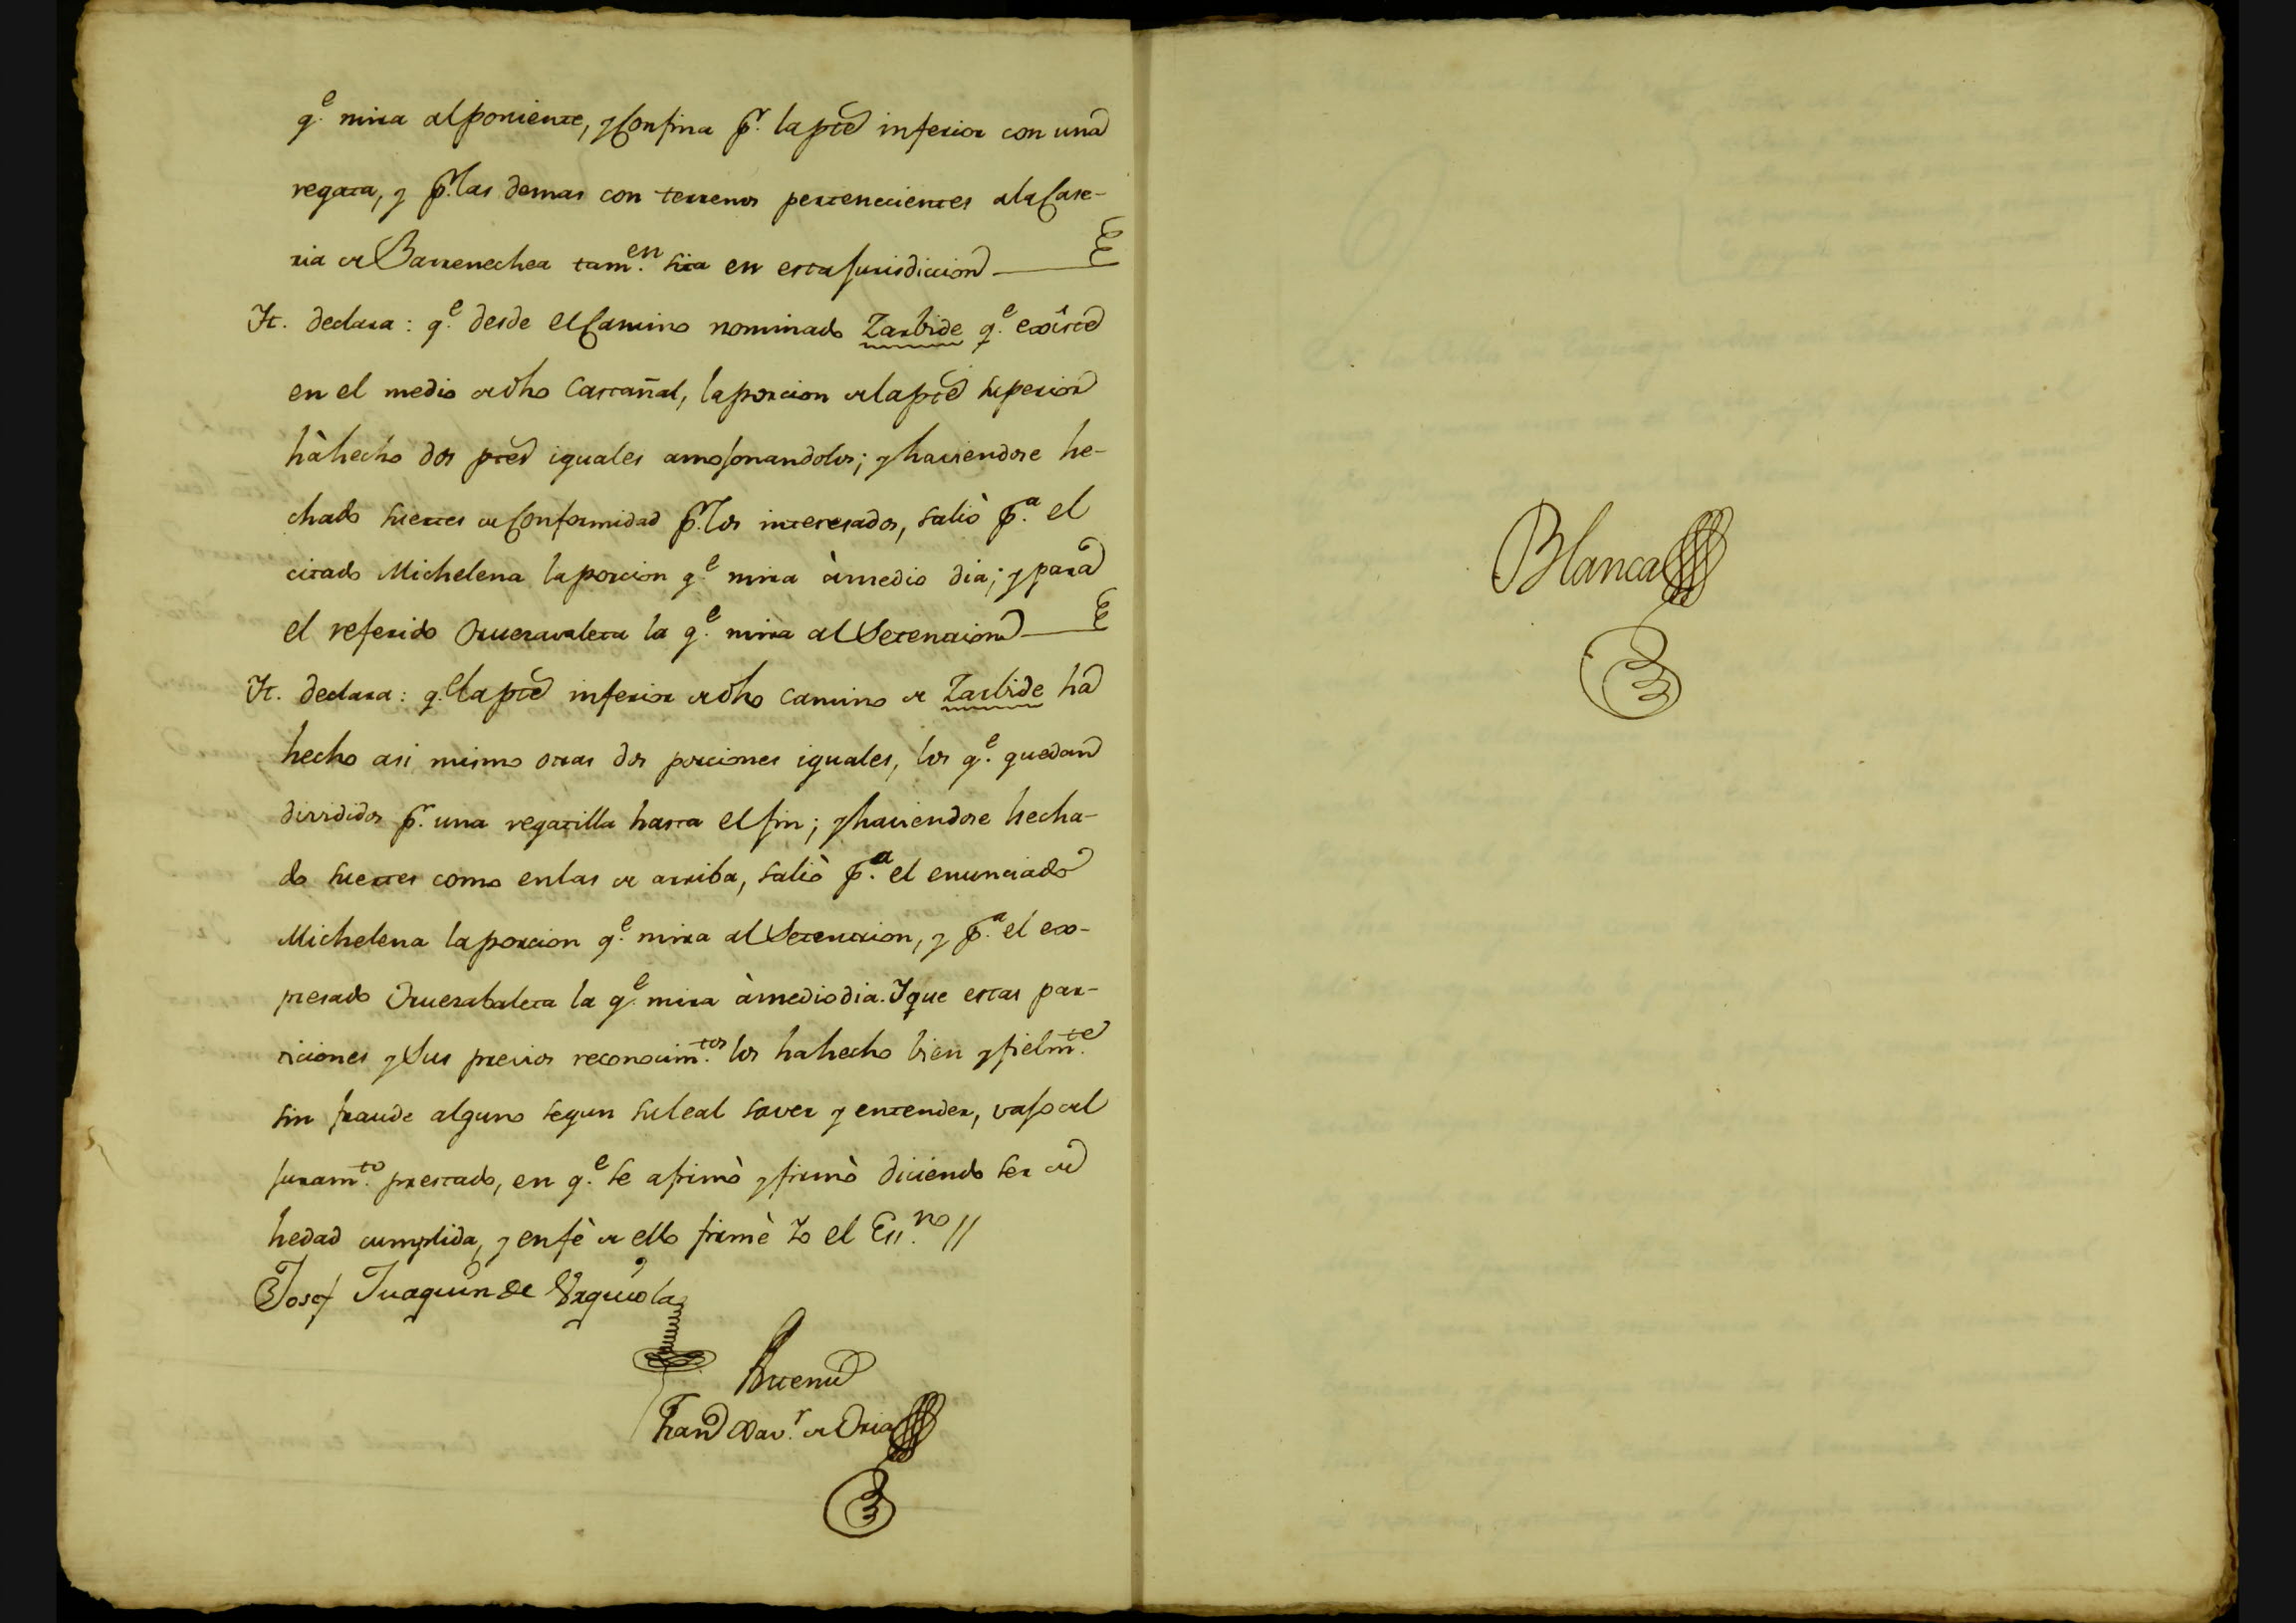 q.e mira al poniente, y Confina p.r la pte inferior con una
regata, y p.r las demas con terrenos pertenecientes a la Case-
ria de Barrenechea tam.en sita en esta Jurisdiccion
It. declara: q.e desde el Camino nominado Zarbide q.e existe
en el medio de dho Castañal, la porcion de la pte superior
hà hecho dos ptes iguales amojonandolos; y haviendose he-
chado suertes de Conformidad p.r los interesados, saliò p.a el
citado Michelena la porcion q.e mira à medio dia; y para
el referido Oruezavaleta la q.e mira al Setentrion
It. declara: q.e la pte inferior de dho camino de Zarbide ha
hecho asi mismo otras dos porciones iguales, los q.e quedan
divididos p.r una regatilla hasta el fin; y haviendose hecha-
do suertes como en las de arriba, saliò p.a el enunciado
Michelena la porcion q.e mira al Setentrion, y p.a el ex-
presado Oruezabaleta la q.e mira à mediodia. Y que estas par-
ticiones y sus previos reconocim.tos los ha hecho bien y fielm.te
sin fraude alguno segun su leal saver y entender, vajo del
Juram.to prestado, en q.e se afirmò y firmò diciendo ser de
hedad cumplida, y en fè de ello firmè Yo el Ess.no //
Josef Juaquin de Vrquiola
Antemi
Fran Xav.r de Oria
Blanca